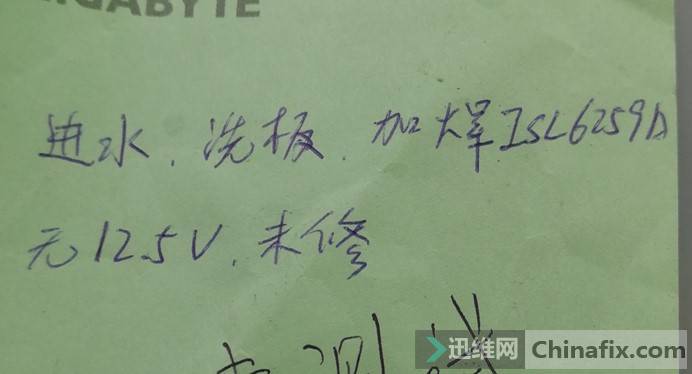 GIGABYTE
进水.洗板.加焊ISL6259A
无12.5V.未修
测
迅维网 Chinafix.com